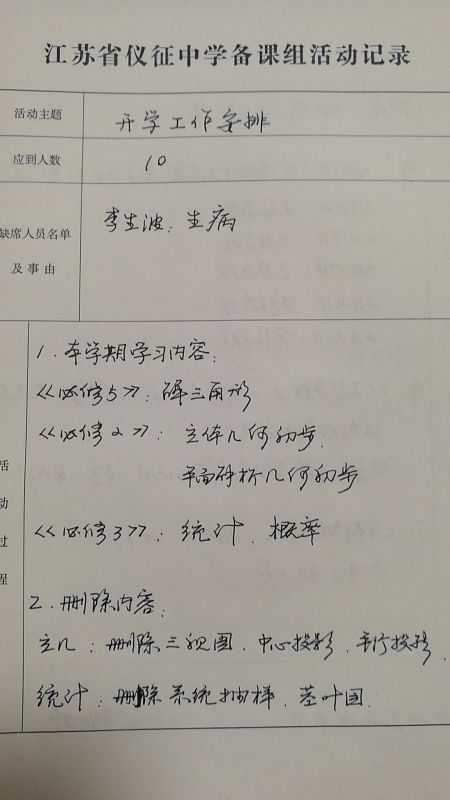 江苏省仪征中学备课组活动记录
活动主题 开学工作安排
应到人数 10
缺席人员名单
及事由
李生波：生病
活动过程
1. 本学期学习内容：
《必修5》：解三角形
《必修2》：立体几何初步.
平面解析几何初步
《必修3》：统计. 概率
2. 删除内容：
立几：删除三视图. 中心投影. 平行投影.
统计：删除系统抽样. 茎叶图.